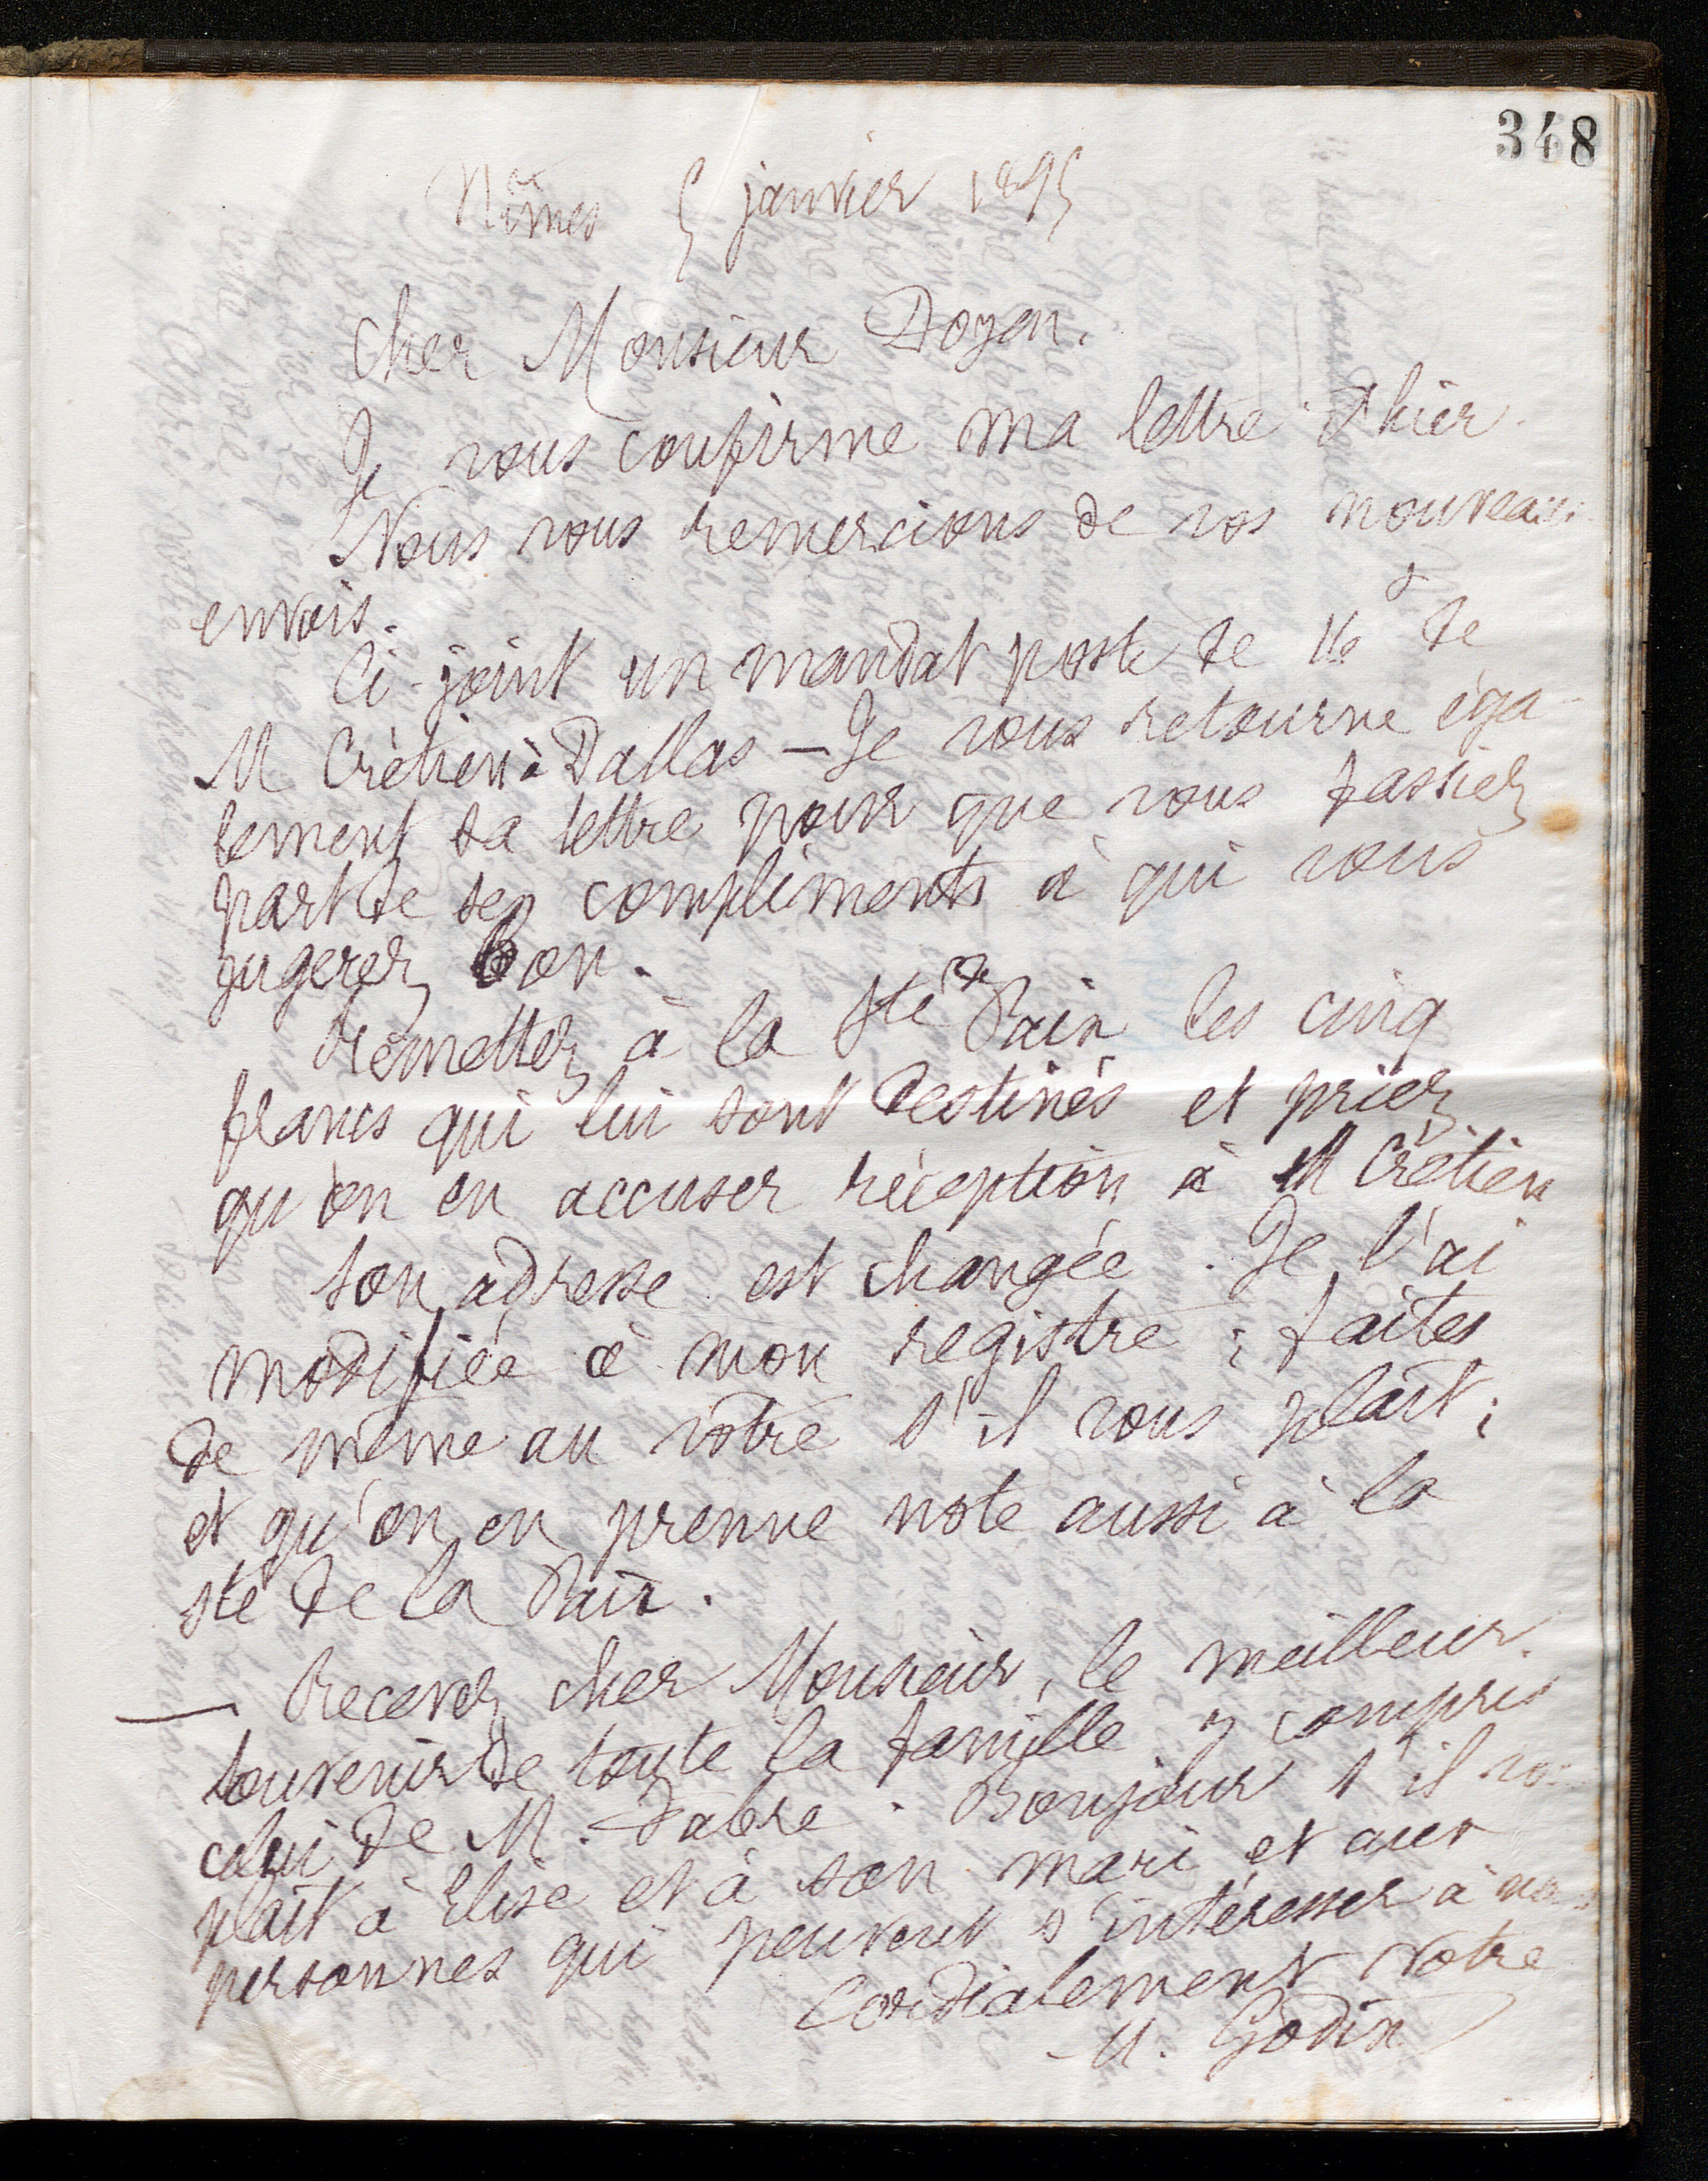 348
Nîmes 5 janvier 1895
Cher Monsieur Doyen.
Je vous confirme ma lettre d'hier.
Nous vous remercions de vos nouveaux
envois.
Ci-joint un mandat poste de de
M Crétien à Dallas — Je vous retourne éga-
lement sa lettre pour que vous fassiez
part de ses compliments à qui vous
jugerez bon.
Remettez à la Sté de Paix les cinq
francs qui lui sont destinés et priez
qu'on en accuser réception à M Crétien
son adresse est changée. Je l'ai
modifiée à mon registre ; faites
de même au vôtre s'il vous plaît ;
et qu'on en prenne note aussi à la
Sté de la Paix.
— Recevez cher Monsieur, le meilleur
souvenir de toute la famille y compris
celui de M. Fabre. Bonjour s'il vous
plaît à Elise et à son mari et aux
personnes qui peuvent s'intéresser à nous
Cordialement votre
M. Godin